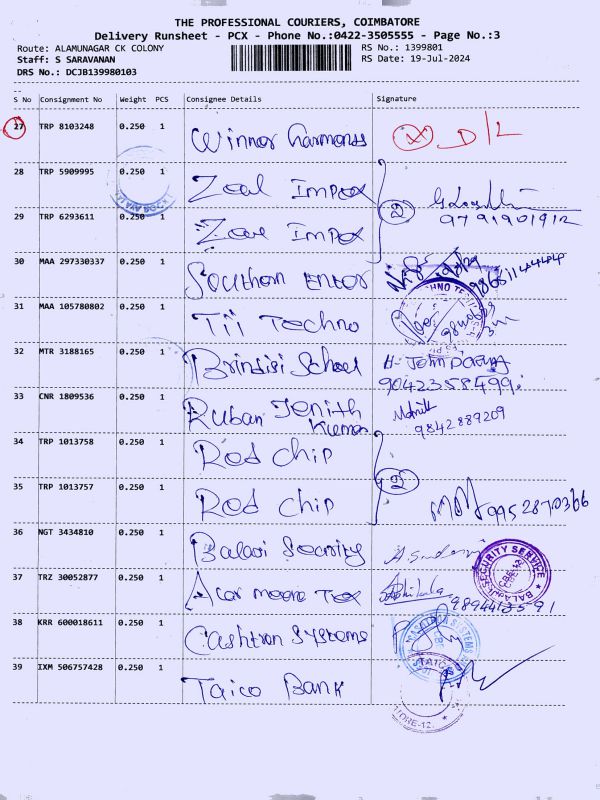 THE PROFESSIONAL COURIERS, COIMBATORE
Delivery Runsheet - PCX - Phone No.:0422-3505555 - Page No.:3
Route: ALAMUNAGAR CK COLONY
RS No.: 1399801
Staff: S SARAVANAN
RS Date: 19-Jul-2024
DRS No.: DCJB139980103
S No Consignment No Weight PCS Consignee Details Signature
27 TRP 8103248 0.250 1 Winner D/L
28 TRP 5909995 0.250 1 Zeal Impex
29 TRP 6293611 0.250 1 Zeal Impex 2 9791901912
30 MAA 297330337 0.250 1 Southern Enter
31 MAA 105780802 0.250 1 Tii Techno
32 MTR 3188165 0.250 1 Brindisi School
9042358499
33 CNR 1809536 0.250 1 Ruban Jenith Kumar
9842889209
34 TRP 1013758 0.250 1 Red chip
35 TRP 1013757 0.250 1 Red chip 2 9952870366
36 NGT 3434810 0.250 1 Balaji Security
SECURITY SERVICE
37 TRZ 30052877 0.250 1 Tex
38 KRR 600018611 0.250 1 Cashtron Systems
39 IXM 506757428 0.250 1 Taico Bank